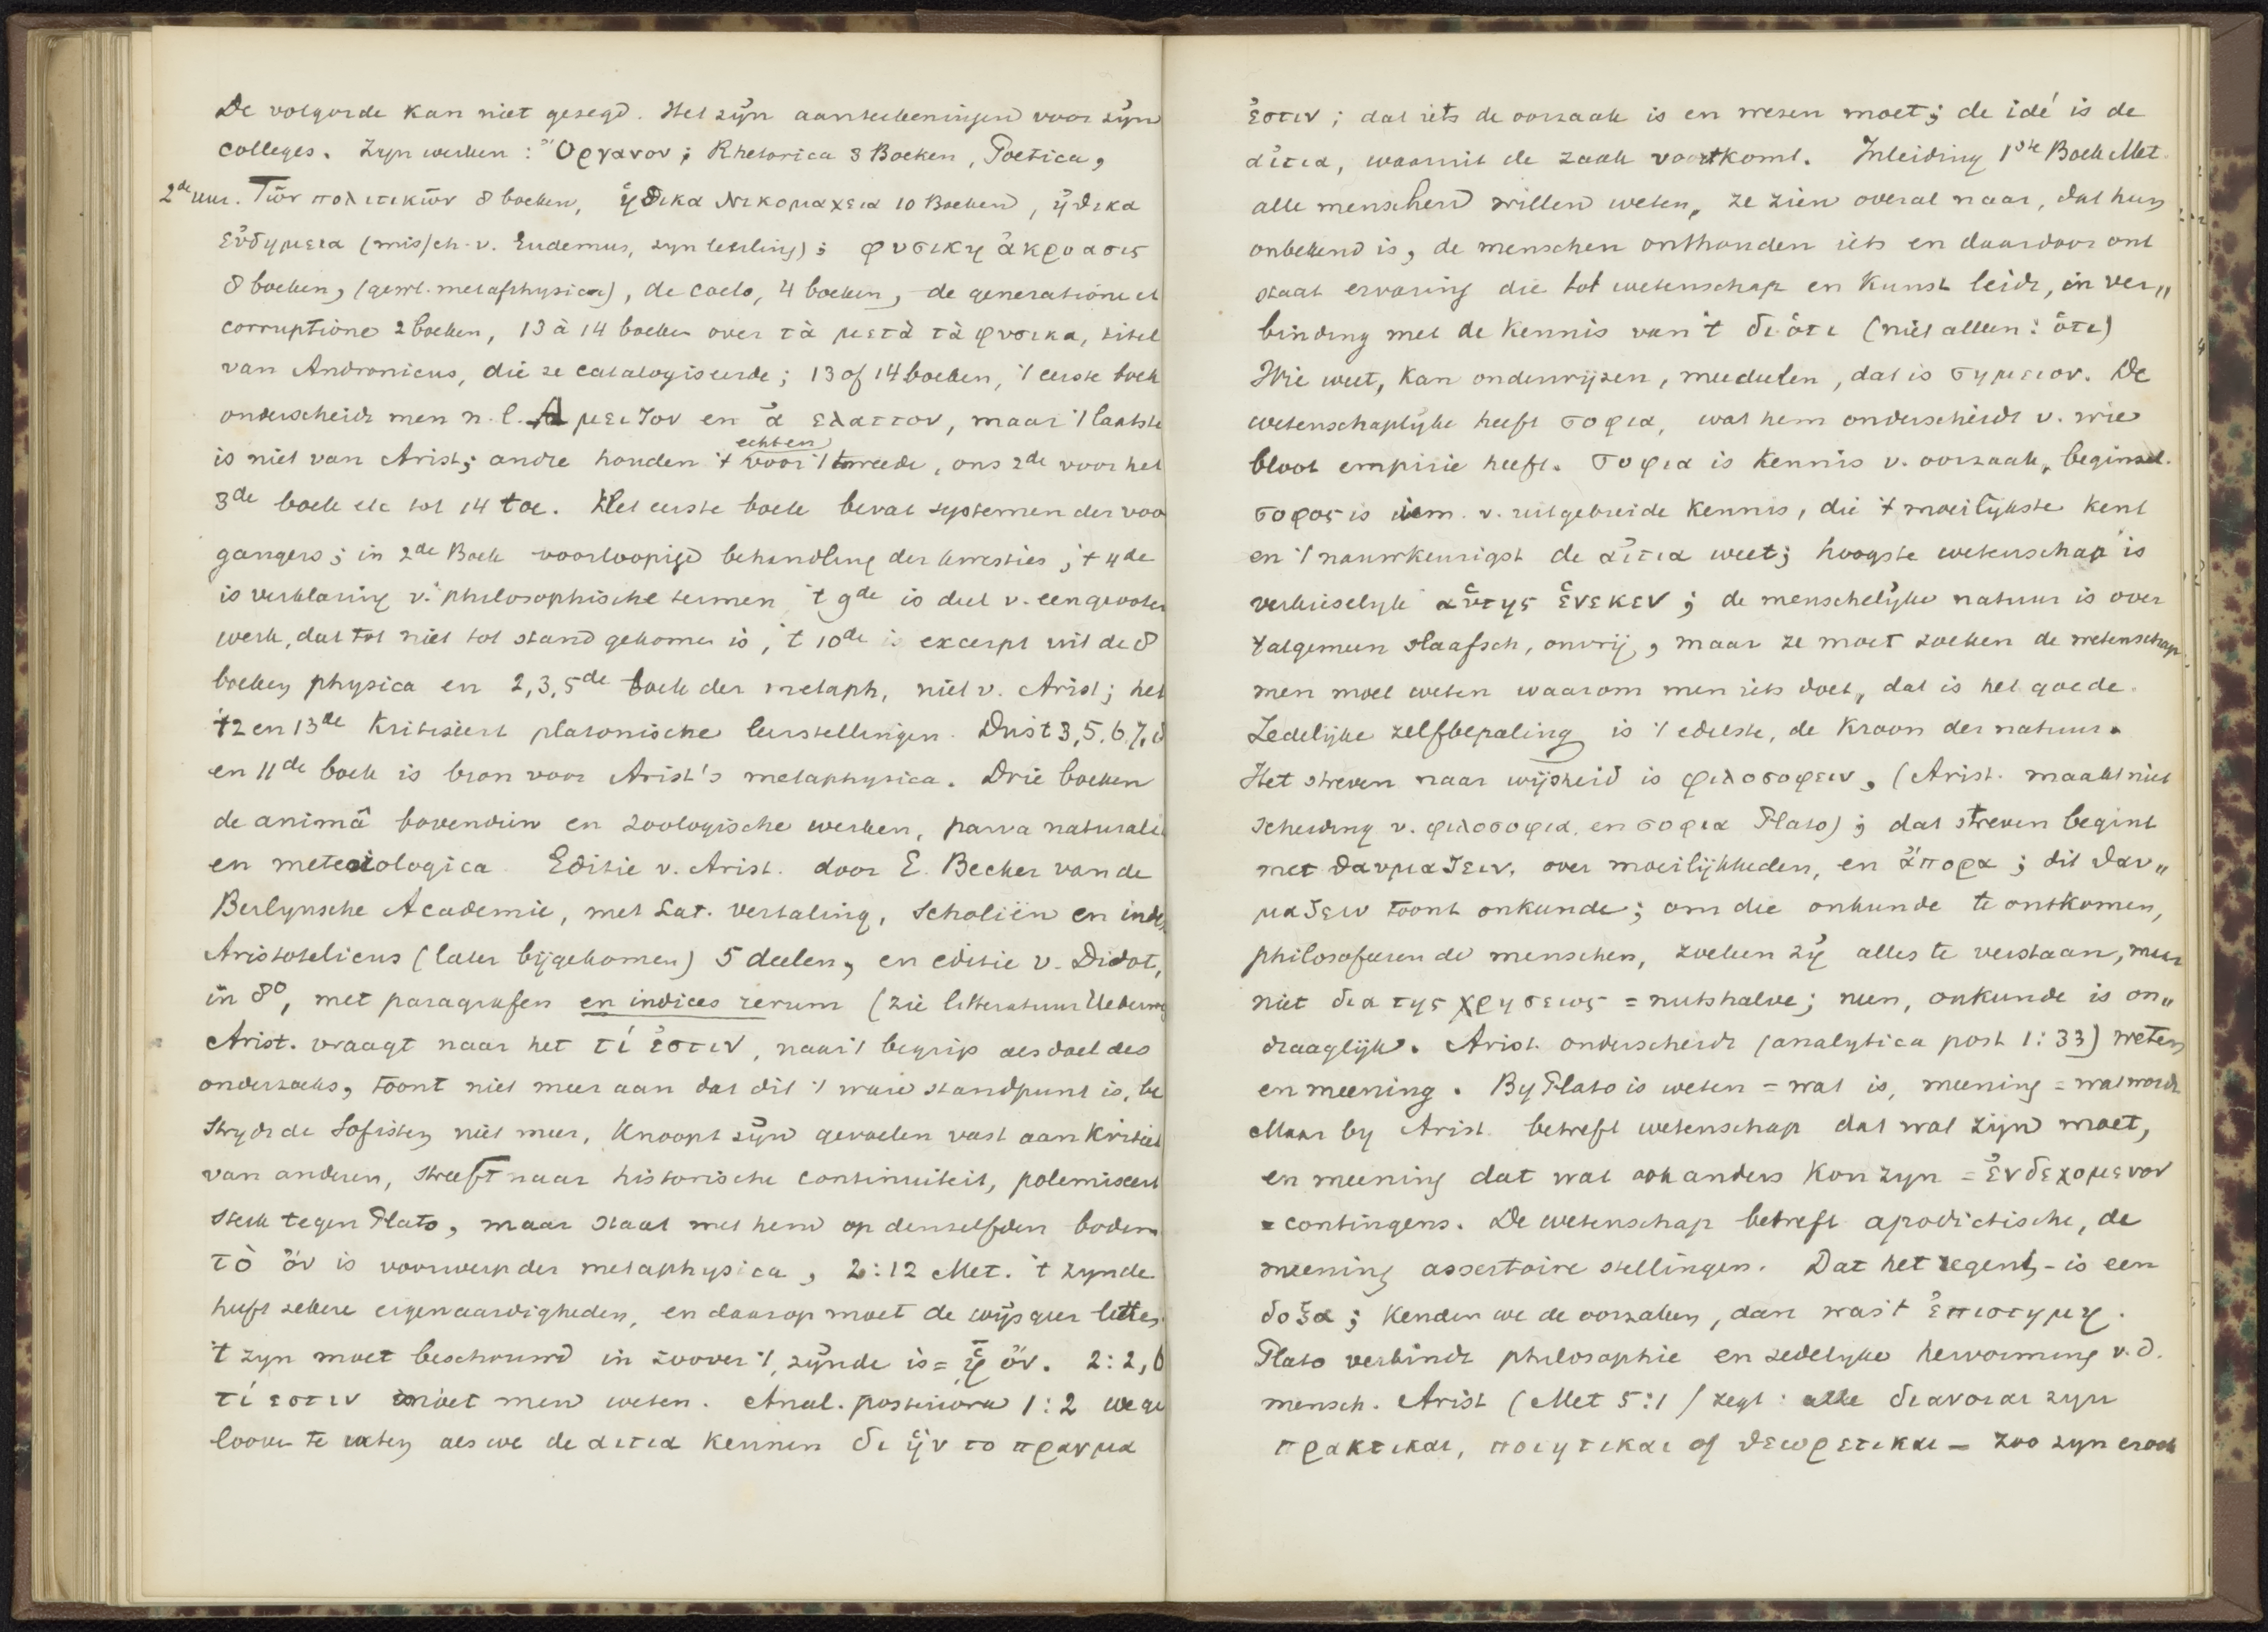 De volgorde kan niet gezegd. Het zijn aanteekeningen voor zijn
colleges. Zyn werken: Ὄργανον; Rhetorica 3 Boeken, Poetica,
2de uur. Τῶν πολιτικῶν 8 boeken, ἠθικα Νικομαχεια 10 Boeken, ἠθικα
εὐδημεια (missch. v. Eudemus, zyn leerling); φυσικη ἀκροασις
8 boeken, (gewl. metaphysica), de coelo, 4 boeken, de generatione et
corruptione 2 boeken, 13 à 14 boeken over τὰ μετὰ τὰ φυσικα, titel
van Andronicus, die ze catalogiseerde; 13 of 14 boeken, 't eerste boek
onderscheidt men n.l. Α μειζον en ἀ ελαττον, maar 't laatste
is niet van Arist; andre houden 't voor 't tweede, ons 2de voor het
echten
3de boek etc tot 14 toe. Het eerste boek bevat systemen der voor
gangers; in 2de Boek voorloopige behandling der kwesties, 't 4de
is verklaring v. philosophische termen 't 9de is deel v. een grooter
werk, dat tot niet tot stand gekomen is, 't 10de is excerpt uit de 8
boeken physica en 2,3,5de boek der metaph, niet v. Arist; het
12 en 13de kritiseert platonische leerstellingen. Dus 't 3,5.6.7.8
en 11de boek is bron voor Arist's metaphysica. Drie boeken
de animâ bovendien en zoologische werken, parva naturalia
en meteoiologica. Editie v. Arist. door E. Becker van de
Berlynsche Academie, met Lat. vertaling, Scholiën en index
Aristotelicus (later bijgekomen) 5 deelen, en editie v. Didot,
in 8o, met paragrafen en indices rerum (zie litteratuur Ueberweg
Arist. vraagt naar het τί ἐστιν, naar 't begrip als doel des
onderzoeks, toont niet meer aan dat dit 't ware standpunt is, be
strydt de Sofisten niet meer, knoopt zijn gevoelen vast aan Kritiek
van anderen, streeft naar historische continuiteit, polemiseert
sterk tegen Plato, maar staat met hem op denzelfden bodem
τὸ ὄν is voorwerp der metaphysica, 2:12 Met. 't zynde
heeft zekere eigenaardigheden, en daarop moet de wijsgeer letten
't zyn moet beschouwd in zoover 't zijnde is = ᾗ ὄν. 2:2,6
τί εστιν moet men weten. Anal. posteriora 1:2 we ge
looven te weten als we de αιτια kennen δι ἡν το πραγμα
ἐστιν; dat iets de oorzaak is en wezen moet; de idé is de
αἰτια, waaruit de zaak voortkomt. Inleiding 1ste Boek Met.
alle menschen willen weten, ze zien overal naar, dat hun
onbekend is, de menschen onthouden iets en daardoor ont
staat ervaring die tot wetenschap en Kunst leidt, in ver„
binding met de kennis van 't διὁτι (niet alleen: ὁτι)
Wie weet, kan onderwijzen, meedeelen, dat is σημειον. De
wetenschaplijke heeft σοφια, wat hem onderscheidt v. wie
bloot empirie heeft. σοφια is kennis v. oorzaak, beginsel.
σοφος is iem. v. uitgebreide kennis, die 't moeilykste kent
en 't nauwkeurigst de αἰτια weet; hoogste wetenschap is
verkieselyk αὑτης ἑνεκεν; de menschelijke natuur is over
't algemeen slaafsch, onvrij, maar ze moet zoeken de wetenschap
men moet weten waarom men iets doet, dat is het goede.
Zedelijke zelfbepaling is 't edelste, de kroon der natuur.
Het streven naar wijsheid is φιλοσοφειν, (Arist. maakt niet
scheiding v. φιλοσοφια en σοφια Plato); dat streven begint
met θαυμαζειν, over moeilijkheden, en ἀπορα; dit θαυ„
μαζειν toont onkunde; om die onkunde te ontkomen,
philosofeeren de menschen, zoeken zij alles te verstaan, maar
niet δια της χρησεως = nutshalve; neen, onkunde is on„
draaglijk. Arist. onderscheidt (analytica post 1:33) weten
en meening. By Plato is weten = wat is, meening = wat wordt
Maar by Arist. betreft wetenschap dat wat zijn moet,
en meening dat wat ook anders kon zyn = ἐνδεχομενον
= contingens. De wetenschap betreft apodictische, de
meening assertoire stellingen. Dat het regent, - is een
δοξα; kenden we de oorzaken, dan was 't ἐπιστημη.
Plato verbindt philosophie en zedelyke hervorming v.d.
mensch. Arist (Met 5:1) zegt: alle διανοιαι zyn
πρακτικαι, ποιητικαι of θεωρετικαι - zoo zyn er ook